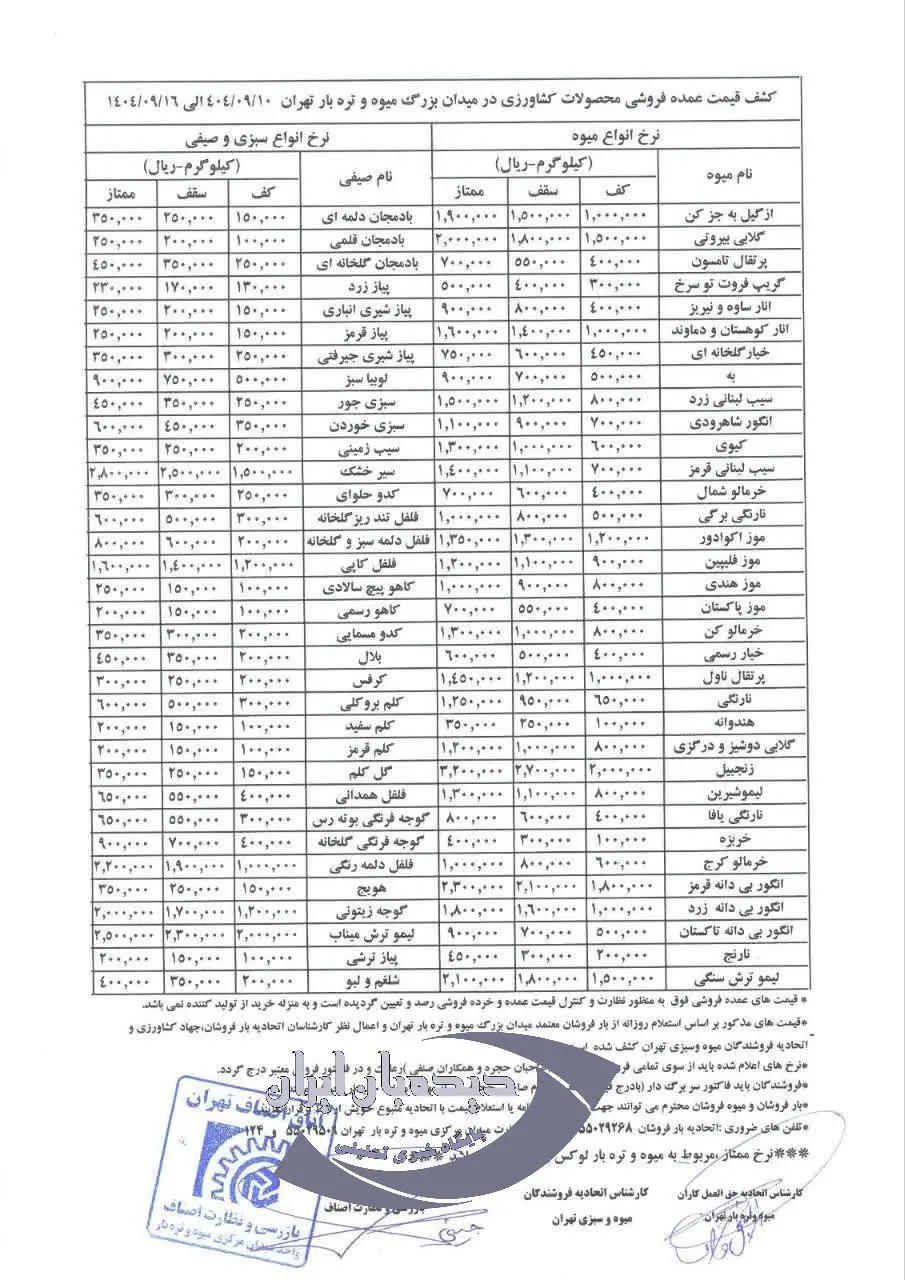 کشف قیمت عمده فروشی محصولات کشاورزی در میدان بزرگ میوه و تره بار تهران ۴۰۴/۰۹/۱۰ الی ۱۴۰۴/۰۹/۱۶
نرخ انواع میوه نرخ انواع سبزی و صیفی
نام میوه (کیلوگرم-ریال) نام صیفی (کیلوگرم-ریال)
کف سقف ممتاز کف سقف ممتاز
ازگیل به جز کن ۱,۰۰۰,۰۰۰ ۱,۵۰۰,۰۰۰ ۱,۹۰۰,۰۰۰ بادمجان دلمه ای ۱۵۰,۰۰۰ ۲۵۰,۰۰۰ ۳۵۰,۰۰۰
گلابی بیروتی ۱,۵۰۰,۰۰۰ ۱,۸۰۰,۰۰۰ ۲,۰۰۰,۰۰۰ بادمجان قلمی ۱۰۰,۰۰۰ ۲۰۰,۰۰۰ ۲۵۰,۰۰۰
پرتقال تامسون ۴۰۰,۰۰۰ ۵۵۰,۰۰۰ ۷۰۰,۰۰۰ بادمجان گلخانه ای ۲۵۰,۰۰۰ ۳۵۰,۰۰۰ ۴۵۰,۰۰۰
گریپ فروت تو سرخ ۳۰۰,۰۰۰ ۴۰۰,۰۰۰ ۵۰۰,۰۰۰ پیاز زرد ۱۳۰,۰۰۰ ۱۷۰,۰۰۰ ۲۳۰,۰۰۰
انار ساوه و نیریز ۴۰۰,۰۰۰ ۸۰۰,۰۰۰ ۹۰۰,۰۰۰ پیاز شیری انباری ۱۵۰,۰۰۰ ۲۰۰,۰۰۰ ۲۵۰,۰۰۰
انار کوهستان و دماوند ۱,۰۰۰,۰۰۰ ۱,۴۰۰,۰۰۰ ۱,۶۰۰,۰۰۰ پیاز قرمز ۱۵۰,۰۰۰ ۲۰۰,۰۰۰ ۲۵۰,۰۰۰
خیارگلخانه ای ۴۵۰,۰۰۰ ۶۰۰,۰۰۰ ۷۵۰,۰۰۰ پیاز شیری جیرفتی ۲۵۰,۰۰۰ ۳۰۰,۰۰۰ ۳۵۰,۰۰۰
به ۵۰۰,۰۰۰ ۷۰۰,۰۰۰ ۹۰۰,۰۰۰ لوبیا سبز ۵۰۰,۰۰۰ ۷۵۰,۰۰۰ ۹۰۰,۰۰۰
سیب لبنانی زرد ۸۰۰,۰۰۰ ۱,۲۰۰,۰۰۰ ۱,۵۰۰,۰۰۰ سبزی جور ۲۵۰,۰۰۰ ۳۵۰,۰۰۰ ۴۵۰,۰۰۰
انگور شاهرودی ۷۰۰,۰۰۰ ۹۰۰,۰۰۰ ۱,۱۰۰,۰۰۰ سبزی خوردن ۳۵۰,۰۰۰ ۴۵۰,۰۰۰ ۶۰۰,۰۰۰
کیوی ۶۰۰,۰۰۰ ۱,۰۰۰,۰۰۰ ۱,۳۰۰,۰۰۰ سیب زمینی ۲۰۰,۰۰۰ ۲۵۰,۰۰۰ ۳۵۰,۰۰۰
سیب لبنانی قرمز ۷۰۰,۰۰۰ ۱,۱۰۰,۰۰۰ ۱,۴۰۰,۰۰۰ سیر خشک ۱,۵۰۰,۰۰۰ ۲,۵۰۰,۰۰۰ ۲,۸۰۰,۰۰۰
خرمالو شمال ۴۰۰,۰۰۰ ۶۰۰,۰۰۰ ۷۰۰,۰۰۰ کدو حلوای ۲۵۰,۰۰۰ ۳۰۰,۰۰۰ ۳۵۰,۰۰۰
نارنگی برگی ۵۰۰,۰۰۰ ۸۰۰,۰۰۰ ۱,۰۰۰,۰۰۰ فلفل تند ریزگلخانه ۳۰۰,۰۰۰ ۵۰۰,۰۰۰ ۶۰۰,۰۰۰
موز اکوادور ۱,۲۰۰,۰۰۰ ۱,۳۰۰,۰۰۰ ۱,۳۵۰,۰۰۰ فلفل دلمه سبز و گلخانه ۲۰۰,۰۰۰ ۶۰۰,۰۰۰ ۸۰۰,۰۰۰
موز فلیپین ۹۰۰,۰۰۰ ۱,۱۰۰,۰۰۰ ۱,۲۰۰,۰۰۰ فلفل کاپی ۱,۲۰۰,۰۰۰ ۱,۴۰۰,۰۰۰ ۱,۶۰۰,۰۰۰
موز هندی ۸۰۰,۰۰۰ ۹۰۰,۰۰۰ ۱,۰۰۰,۰۰۰ کاهو پیچ سالادی ۱۰۰,۰۰۰ ۱۵۰,۰۰۰ ۲۵۰,۰۰۰
موز پاکستان ۴۰۰,۰۰۰ ۵۵۰,۰۰۰ ۷۰۰,۰۰۰ کاهو رسمی ۱۰۰,۰۰۰ ۱۵۰,۰۰۰ ۲۰۰,۰۰۰
خرمالو کن ۸۰۰,۰۰۰ ۱,۰۰۰,۰۰۰ ۱,۳۰۰,۰۰۰ کدو مسمایی ۲۰۰,۰۰۰ ۳۰۰,۰۰۰ ۳۵۰,۰۰۰
خیار رسمی ۴۰۰,۰۰۰ ۵۰۰,۰۰۰ ۶۰۰,۰۰۰ بلال ۲۰۰,۰۰۰ ۳۵۰,۰۰۰ ۴۵۰,۰۰۰
پرتقال ناول ۱,۰۰۰,۰۰۰ ۱,۲۰۰,۰۰۰ ۱,۴۵۰,۰۰۰ کرفس ۲۰۰,۰۰۰ ۲۵۰,۰۰۰ ۳۰۰,۰۰۰
نارنگی ۶۵۰,۰۰۰ ۹۵۰,۰۰۰ ۱,۲۵۰,۰۰۰ کلم بروکلی ۳۰۰,۰۰۰ ۵۰۰,۰۰۰ ۶۰۰,۰۰۰
هندوانه ۱۰۰,۰۰۰ ۲۵۰,۰۰۰ ۳۵۰,۰۰۰ کلم سفید ۱۰۰,۰۰۰ ۱۵۰,۰۰۰ ۲۰۰,۰۰۰
گلابی دوشیز و درگزی ۸۰۰,۰۰۰ ۱,۰۰۰,۰۰۰ ۱,۲۰۰,۰۰۰ کلم قرمز ۱۰۰,۰۰۰ ۱۵۰,۰۰۰ ۲۰۰,۰۰۰
زنجبیل ۲,۰۰۰,۰۰۰ ۲,۷۰۰,۰۰۰ ۳,۲۰۰,۰۰۰ گل کلم ۱۵۰,۰۰۰ ۲۵۰,۰۰۰ ۳۵۰,۰۰۰
لیموشیرین ۸۰۰,۰۰۰ ۱,۱۰۰,۰۰۰ ۱,۳۰۰,۰۰۰ فلفل همدانی ۴۰۰,۰۰۰ ۵۵۰,۰۰۰ ۶۵۰,۰۰۰
نارنگی یافا ۴۰۰,۰۰۰ ۶۰۰,۰۰۰ ۸۰۰,۰۰۰ گوجه فرنگی بوته رس ۳۰۰,۰۰۰ ۵۵۰,۰۰۰ ۶۵۰,۰۰۰
خربزه ۱۰۰,۰۰۰ ۳۰۰,۰۰۰ ۴۰۰,۰۰۰ گوجه فرنگی گلخانه ۴۰۰,۰۰۰ ۷۰۰,۰۰۰ ۹۰۰,۰۰۰
خرمالو کرج ۶۰۰,۰۰۰ ۸۰۰,۰۰۰ ۱,۰۰۰,۰۰۰ فلفل دلمه رنگی ۱,۰۰۰,۰۰۰ ۱,۹۰۰,۰۰۰ ۲,۲۰۰,۰۰۰
انگور بی دانه قرمز ۱,۸۰۰,۰۰۰ ۲,۱۰۰,۰۰۰ ۲,۳۰۰,۰۰۰ هویج ۱۵۰,۰۰۰ ۲۵۰,۰۰۰ ۳۵۰,۰۰۰
انگور بی دانه زرد ۱,۰۰۰,۰۰۰ ۱,۶۰۰,۰۰۰ ۱,۸۰۰,۰۰۰ گوجه زیتونی ۱,۲۰۰,۰۰۰ ۱,۷۰۰,۰۰۰ ۲,۰۰۰,۰۰۰
انگور بی دانه تاکستان ۵۰۰,۰۰۰ ۷۰۰,۰۰۰ ۹۰۰,۰۰۰ لیمو ترش میناب ۲,۰۰۰,۰۰۰ ۲,۳۰۰,۰۰۰ ۲,۵۰۰,۰۰۰
نارنج ۲۰۰,۰۰۰ ۳۰۰,۰۰۰ ۴۵۰,۰۰۰ پیاز ترشی ۱۰۰,۰۰۰ ۱۵۰,۰۰۰ ۲۰۰,۰۰۰
لیمو ترش سنگی ۱,۵۰۰,۰۰۰ ۱,۸۰۰,۰۰۰ ۲,۱۰۰,۰۰۰ شلغم و لبو ۲۰۰,۰۰۰ ۳۵۰,۰۰۰ ۴۰۰,۰۰۰
* قیمت های عمده فروشی فوق به منظور نظارت و کنترل قیمت عمده و خرده فروشی رصد و تعیین گردیده است و به منزله خرید از تولید کننده نمی باشد.
*قیمت های مذکور بر اساس استعلام روزانه از بار فروشان معتمد میدان بزرگ میوه و تره بار تهران و اعمال نظر کارشناسان اتحادیه بار فروشان،جهاد کشاورزی و
اتحادیه فروشندگان میوه وسبزی تهران کشف شده است
*نرخ های اعلام شده باید از سوی تمامی صاحبان حجره و همکاران صنفی )رعایت و در فاکتور فروش معتبر درج گردد.
*فروشندگان باید فاکتور سر برگ دار (بادرج
*بار فروشان و میوه فروشان محترم می توانند جهت یا استعلام قیمت با اتحادیه متبوع خویش ارتباط برقرار نمایند
*تلفن های ضروری :اتحادیه بار فروشان ۵۵۰۲۹۲۶۸ میدان مرکزی میوه و تره بار تهران ۵۵۰۲۹۵۰۹ و ۱۲۴
***نرخ ممتاز ،مربوط به میوه و تره بار لوکس
دیده‌بان ایران
پایگاه خبری تحلیلی
کارشناس اتحادیه حق العمل کاران
میوه و تره بار تهران
کارشناس اتحادیه فروشندگان
میوه و سبزی تهران
بازرسی و نظارت اصناف
اتاق اصناف تهران
بازرسی و نظارت اصناف
واحد میدان مرکزی میوه و تره بار